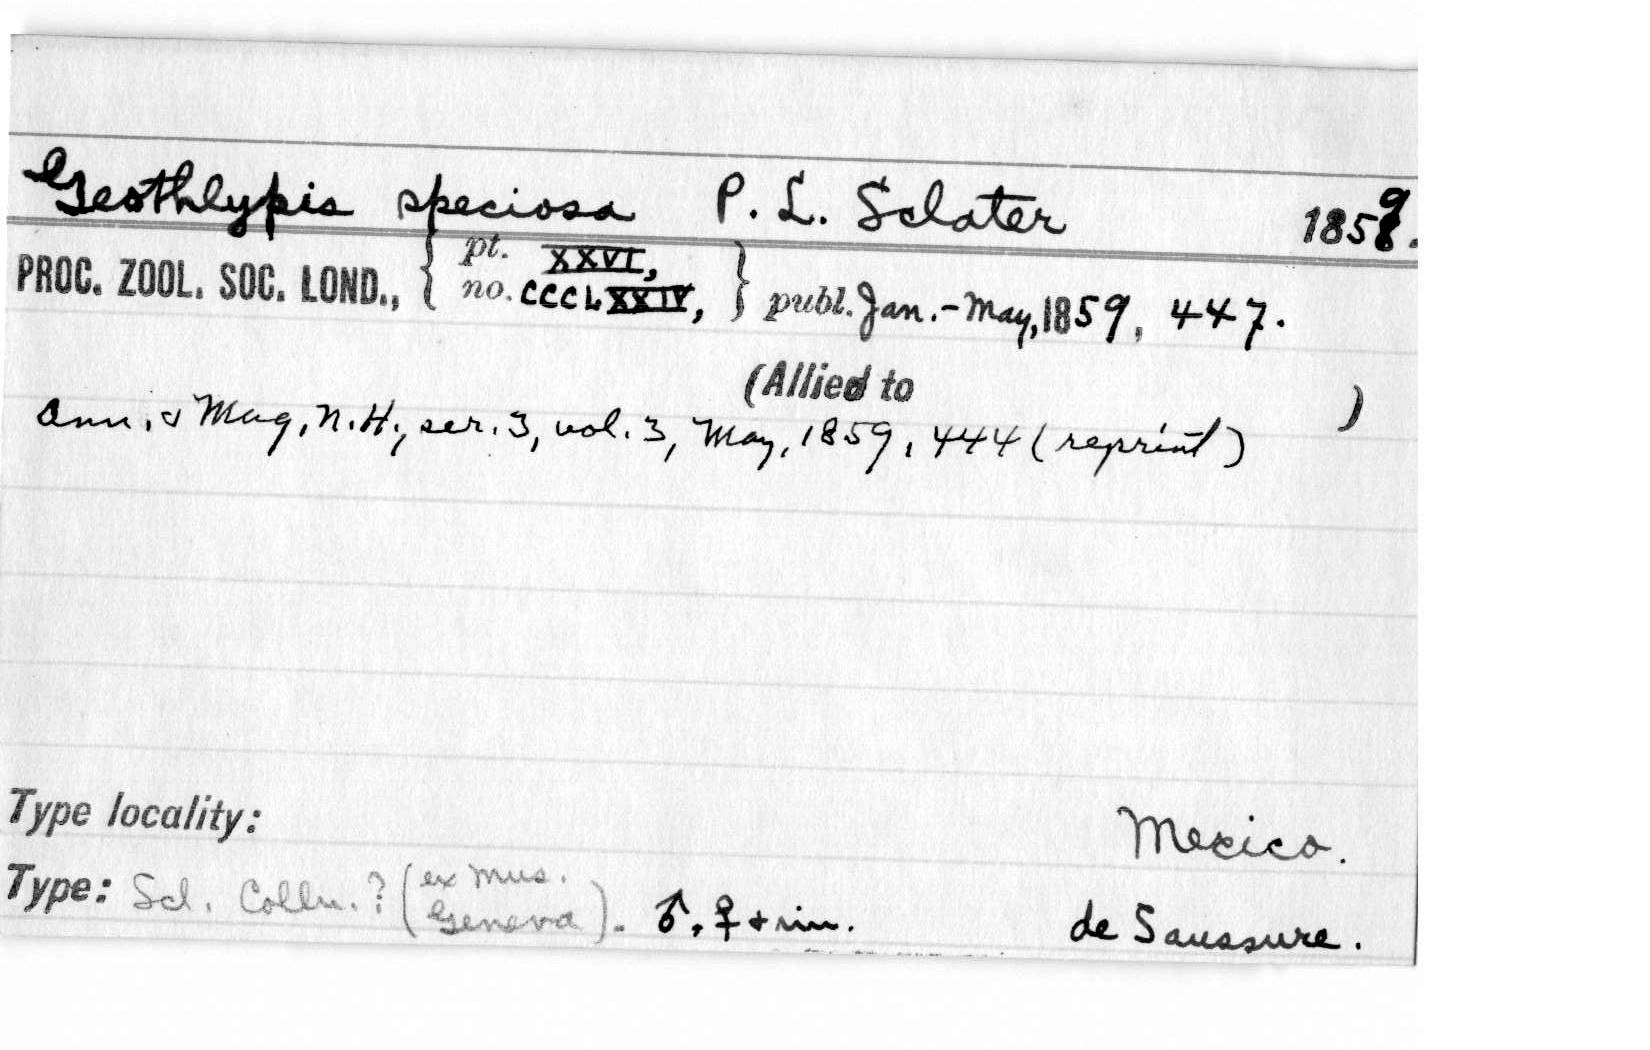 Geothlypis speciosa P. L. Sclater 1859.
PROC. ZOOL. SOC. LOND., { pt. XXVI, no. CCCLXXIV, } publ. Jan.-May, 1859, 447.
(Allied to )
Ann. & Mag. N.H., ser. 3, vol. 3, May, 1859, 444 (reprint)
Type locality: Mexico.
Type: Scl. Colln. ? (ex Mus. Geneva). ♂, ♀ + im. de Saussure.